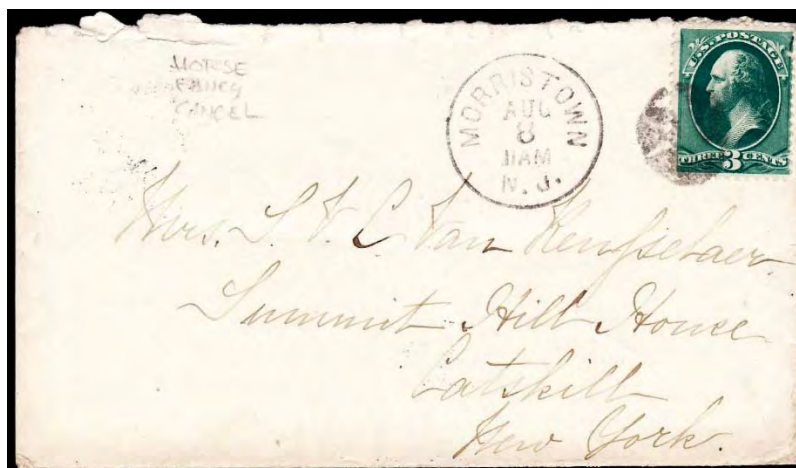 HORSE
FANCY
CANCEL
MORRISTOWN
AUG
8
11AM
N. J.
U.S. POSTAGE
THREE 3 CENTS
Mrs. S. V. C. Van Rensselaer.
Summit Hill House
Catskill
New York.